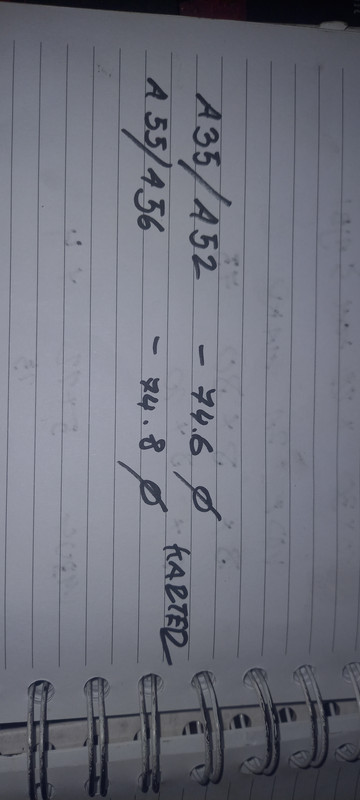 A35/A52 - 74.6 Ø
A55/A56 - 74.8 Ø